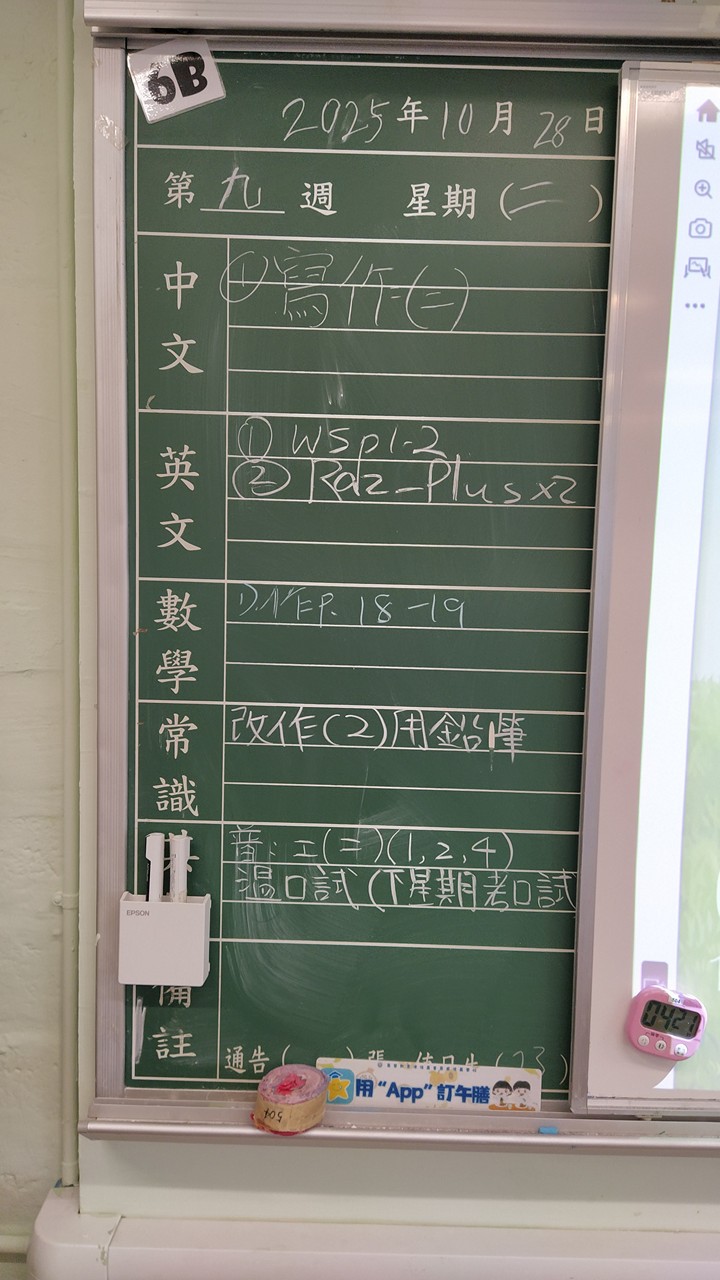 6B
2025年10月28日
第 九 週 星期(二)
中文
①寫作(二)
英文
① WS p1-2
② Raz-Plus x2
數學
1).作P. 18-19
常識
改作(2)用鉛筆
普:工(二)(1,2,4)
溫口試(下星期考口試
EPSON
備註
通告( ) 張 值日生(23)
用“App”訂午膳
0421